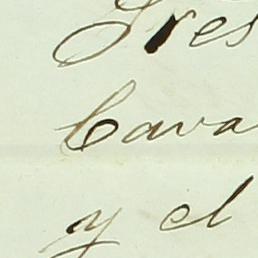 Tres
Cava
y el